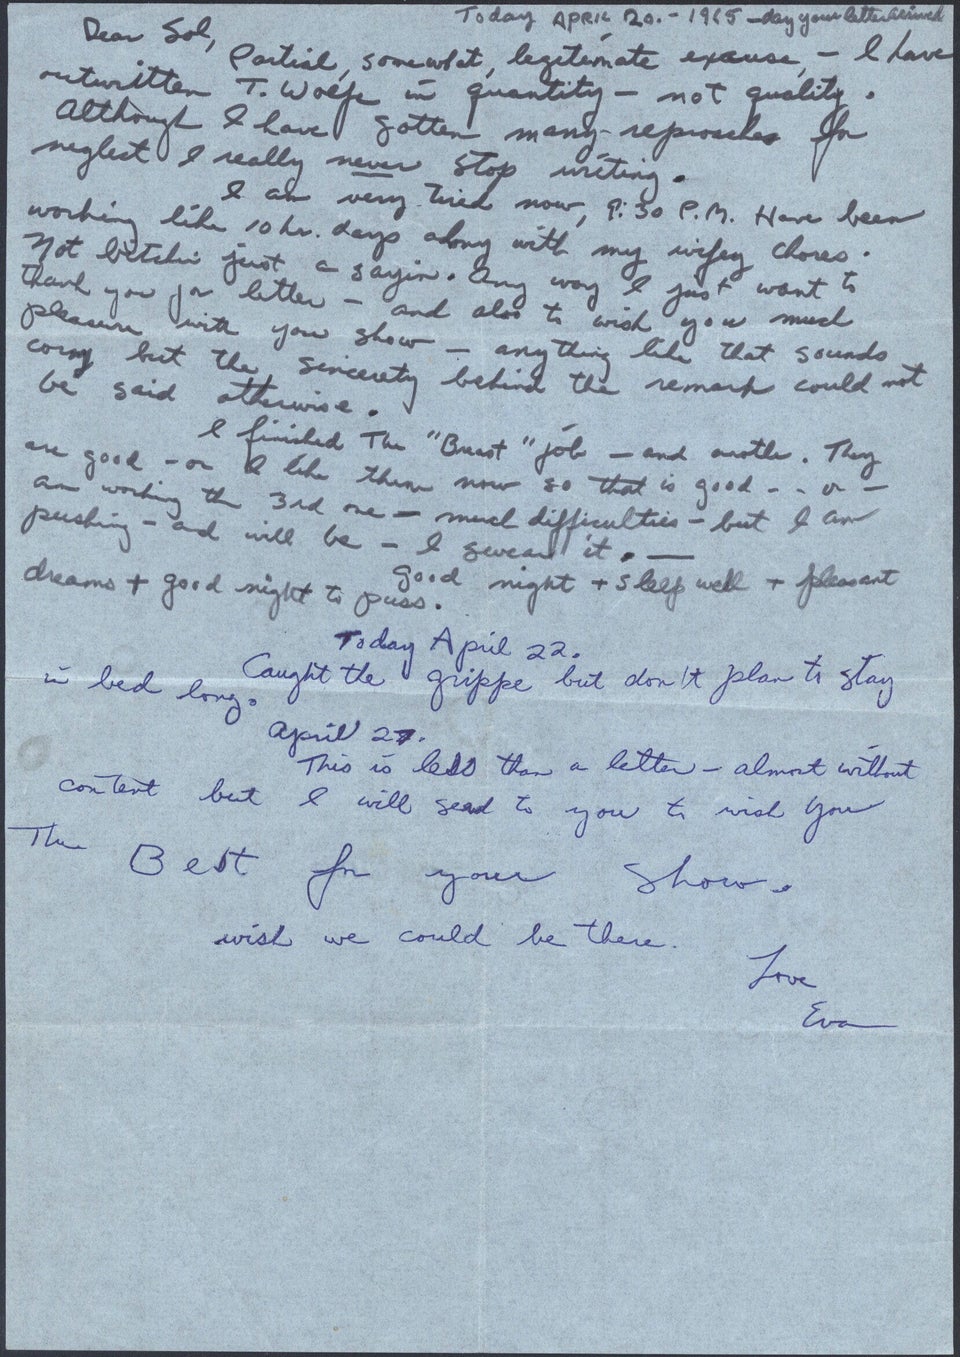 Today APRIL 20. - 1965 - day your letter arrived
Dear Sol,
Partial, somewhat, legitimate excuse, - I have
outwritten T. Wolfe in quantity - not quality.
Although I have gotten many reproaches for
neglect I really never stop writing.
I am very tired now, 9:30 P.M. Have been
working like 10 hr. days along with my wifey chores.
Not bitchin just a sayin. Any way I just want to
thank you for letter - and also to wish you much
pleasure with your show - anything like that sounds
corny but the sincerety behind the remark could not
be said otherwise.
I finished The "Burst" job - and another. They
are good - or I like them now so that is good - - or -
am working the 3rd one - much difficulties - but I am
pushing - and will be - I swear it. —
good night + sleep well + pleasant
dreams + good night to puss.
Today April 22.
Caught the grippe but don't plan to stay
in bed long.
April 27.
This is less than a letter - almost without
content but I will send to you to wish you
The Best for your show.
wish we could be there.
Love
Eva